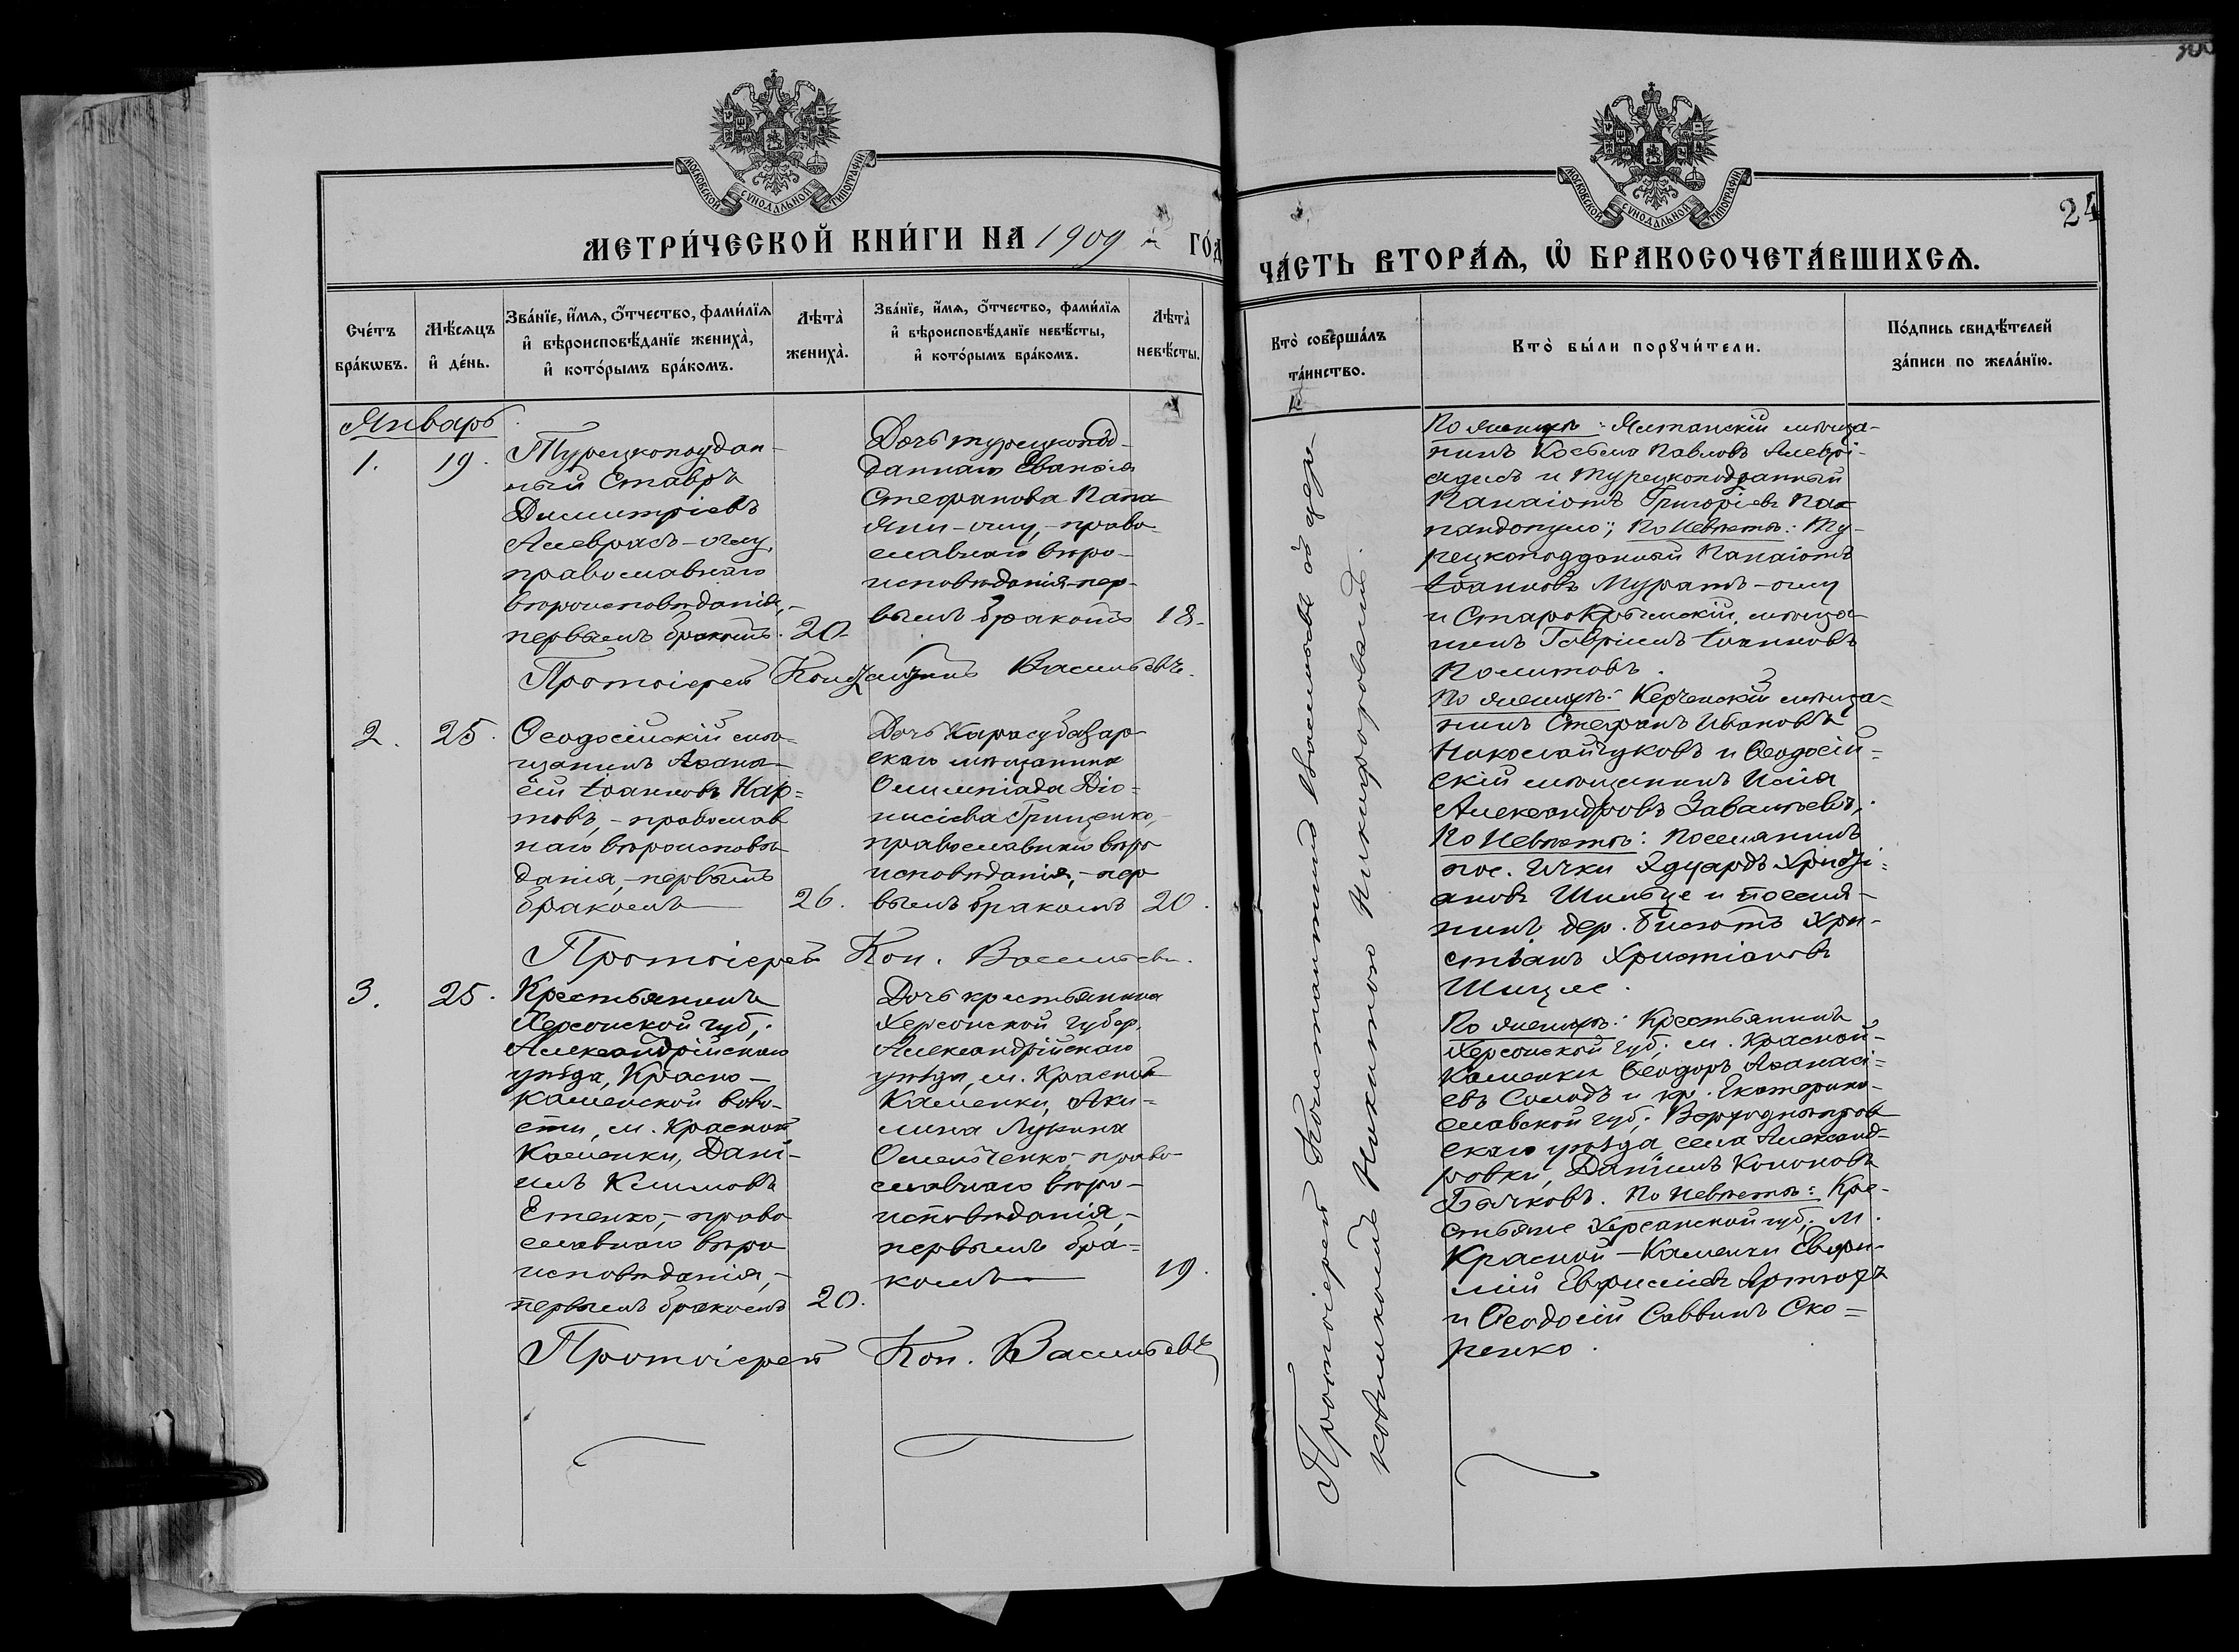 МОСКОВСКОЙ СУНОДАЛЬНОЙ ТИПОГРАФІИ
МЕТРИ́ЧЕСКОЙ КНИ́ГИ НА 1909 ГО́Д
Сче́тъ
бра́кѡвъ.
Мѣ́сяцъ
и҆ де́нь.
Зва́нїе, и҆́мѧ, ѻ҆́тчество, фами́лїѧ
и҆ вѣроисповѣ́данїе жениха̀,
и҆ кото́рымъ бра́комъ.
Лѣ́та̀
жениха̀.
Зва́нїе, и҆́мѧ, ѻ҆́тчество, фами́лїѧ
и҆ вѣроисповѣ́данїе невѣ́сты,
и҆ кото́рымъ бра́комъ.
Лѣ́та̀
невѣ́сты.
Январь
1.
19.
Турецкоподдан-
ный Ставръ
Димитріевъ
Алеврасъ-оглу,
православнаго
вѣроисповѣданія,-
первымъ бракомъ.
20.
Дочь турецкопод-
даннаго Еванѳія
Стефанова Папа
Яни-оглу,- право-
славнаго вѣро-
исповѣданія-пер-
вымъ бракомъ
18.
Протоіерей Васильевъ.
2.
25.
Ѳеодосійскій мѣ-
щанинъ Аѳана-
сій Іоанновъ Кар=
товъ,- православ
наго вѣроисповѣ-
данія,- первымъ
бракомъ
26.
Дочь Карасубазар-
скаго мѣщанина
Олимпіада Діо=
нисіева Грищенко,-
православнаго вѣро
исповѣданія,- пер
вымъ бракомъ
20.
Протоіерей Кон. Васильевъ.
3.
25.
Крестьянинъ
Херсонской губ,.
Александрійскаго
уѣзда, Красно-
каменской воло-
сти, м. Красной
Каменки, Дані-
илъ Климовъ
Етенко,- право
славнаго вѣро
исповѣданія,-
первымъ бракомъ
20.
Дочь крестьянина
Херсонской губер.
Александрійскаго
уѣзда, м. Красной
Каменки, Аки=
лина Лукина
Омельченко- право-
славнаго вѣро-
исповѣданія,-
первымъ бра=
комъ
19.
Протоіерей Кон. Васильевъ
МОСКОВСКОЙ СУНОДАЛЬНОЙ ТИПОГРАФІИ
24
ЧА́СТЬ ВТОРА́Ѧ, Ѡ҆ БРАКОСОЧЕТА́ВШИХСѦ.
Кто̀ соверша́лъ
та́инство.
Кто̀ бы́ли порꙋчи́тели.
По́дпись свидѣ́телей
за́писи по жела́нїю.
Протоіерей Константинъ Васильевъ съ цер-
ковникомъ Никитою Никифоровымъ.
По женихѣ: Ялтанскій мѣща-
нинъ Косьма Павловъ Алеврі-
адисъ и Турецкоподданный
Панаіотъ Григорьевъ Па
пандопуло; По Невѣстѣ: Ту-
рецкоподданный Панаіотъ
Іоанновъ Муратъ-оглу
и СтароКрымскій мѣща
нинъ Гавріилъ Іоанновъ
Политовъ.
По женихѣ: Керченскій мѣща-
нинъ Стефанъ Ивановъ
Николайчуковъ и Ѳеодосій=
скій мѣщанинъ Илія
Александровъ Завалѣевъ,.
По Невѣстѣ: Поселянинъ
пос. Ички Эдуардъ Христі=
ановъ Шульце и поселя-
нинъ дер. Бисютъ Хри-
стіанъ Христіановъ
По женихѣ: Крестьянинъ
Херсонской губ,. м. Красной-
Каменки Ѳеодоръ Аѳанасі=
евъ Солодъ и кр. Екатерино-
славской губ,. Верходнѣпров
скаго уѣзда села Александ-
ровки, Даніилъ Кононовъ
Бычковъ. По невѣстѣ: Кре-
стьяне Херсонской губ,. м.
Красной-Каменки Евфи-
мій Евфиміевъ Артюхъ
и Ѳеодосій Саввинъ Ско=
ренко.